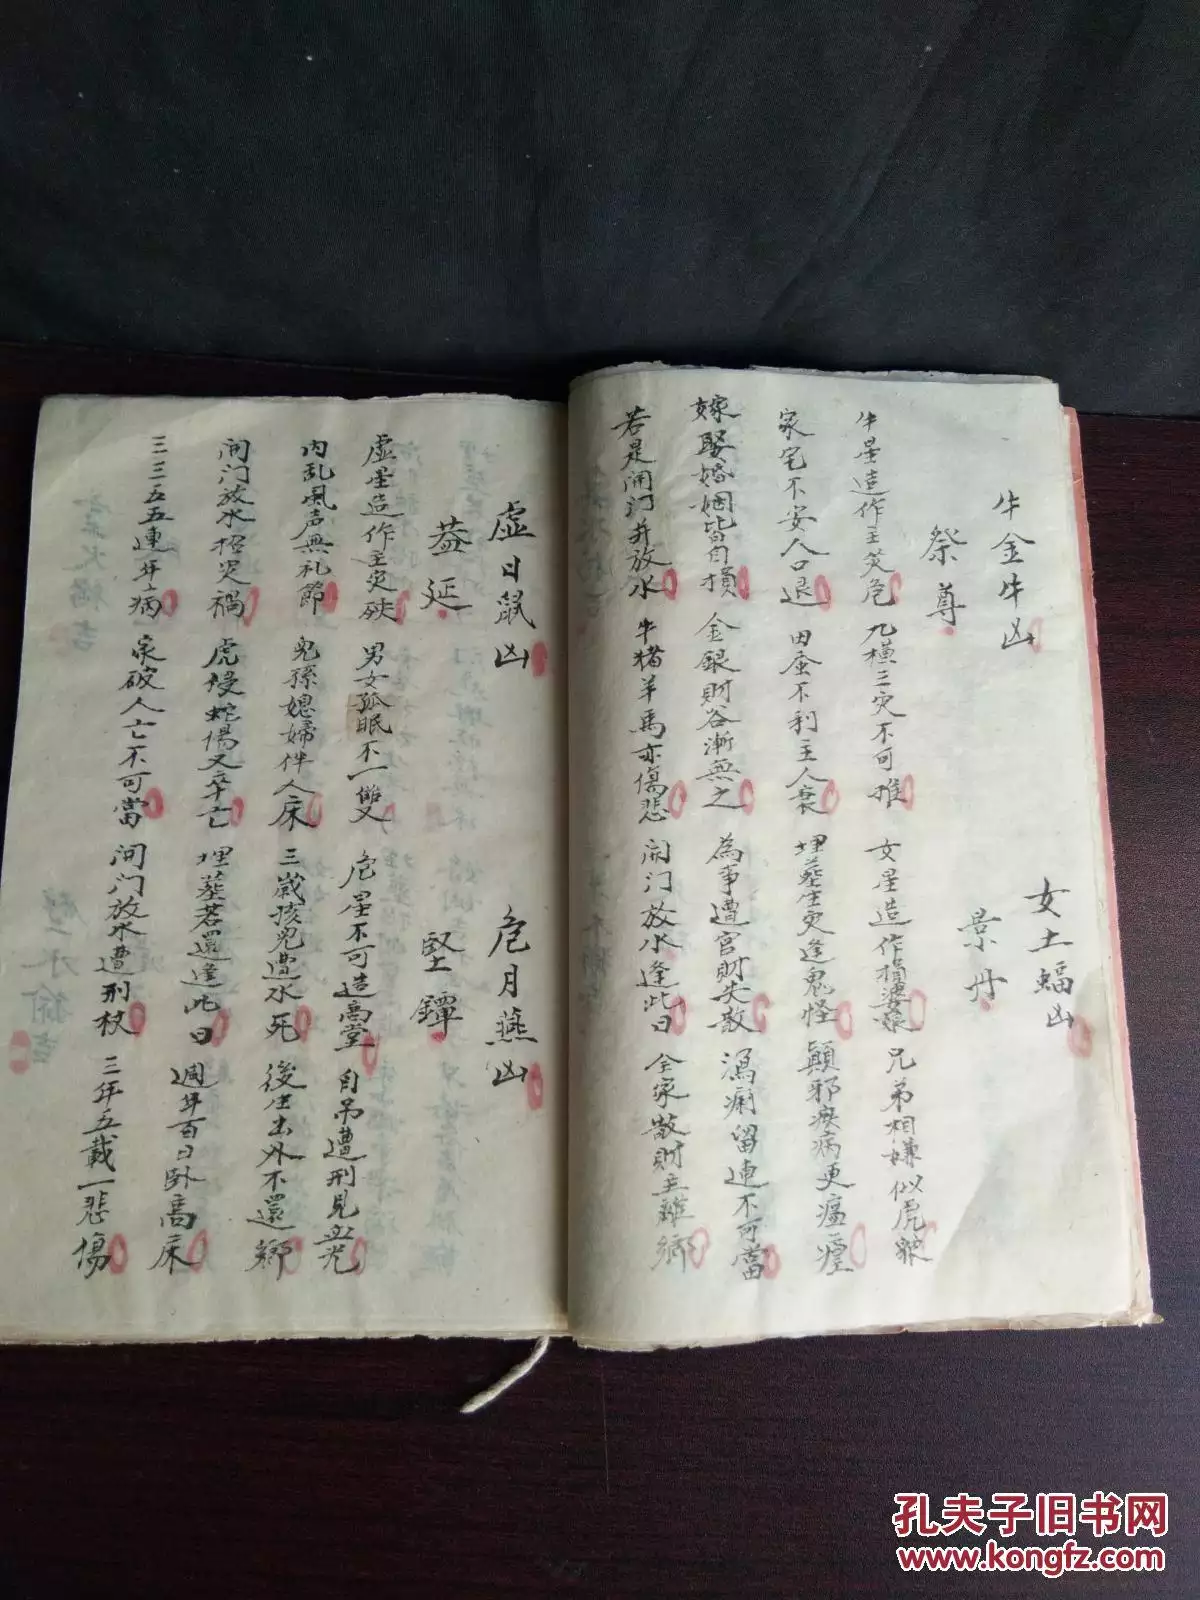 牛金牛凶
祭尊
牛星造作主灾危 九横三灾不可推
家宅不安人口退 田蚕不利主人衰
嫁娶婚姻皆自損 金銀財谷漸無之
若是開门并放水 牛猪羊馬亦傷悲
女土蝠凶
景丹
女星造作損婆娘 兄弟相嫌似虎狼
埋葬生灾逢鬼怪 顛邪疾病更瘟瘟
為事遭官財失散 瀉痢留連不可當
開门放水逢此日 全家散財主離鄉
虛日鼠凶
蓋延
虛星造作主灾殃 男女孤眠不一雙
内乱風声無礼節 兒孫媳婦伴人床
開门放水招灾禍 虎侵蛇傷又卒亡
三三五五連年病 家破人亡不可當
危月燕凶
堅鐔
危星不可造高堂 自吊遭刑見血光
三歲孩兒遭水死 後生出外不還鄉
埋葬若還逢此日 週年百日卧高床
開门放水遭刑杖 三年五載一悲傷
室火猪吉
孔夫子旧书网
www.kongfz.com